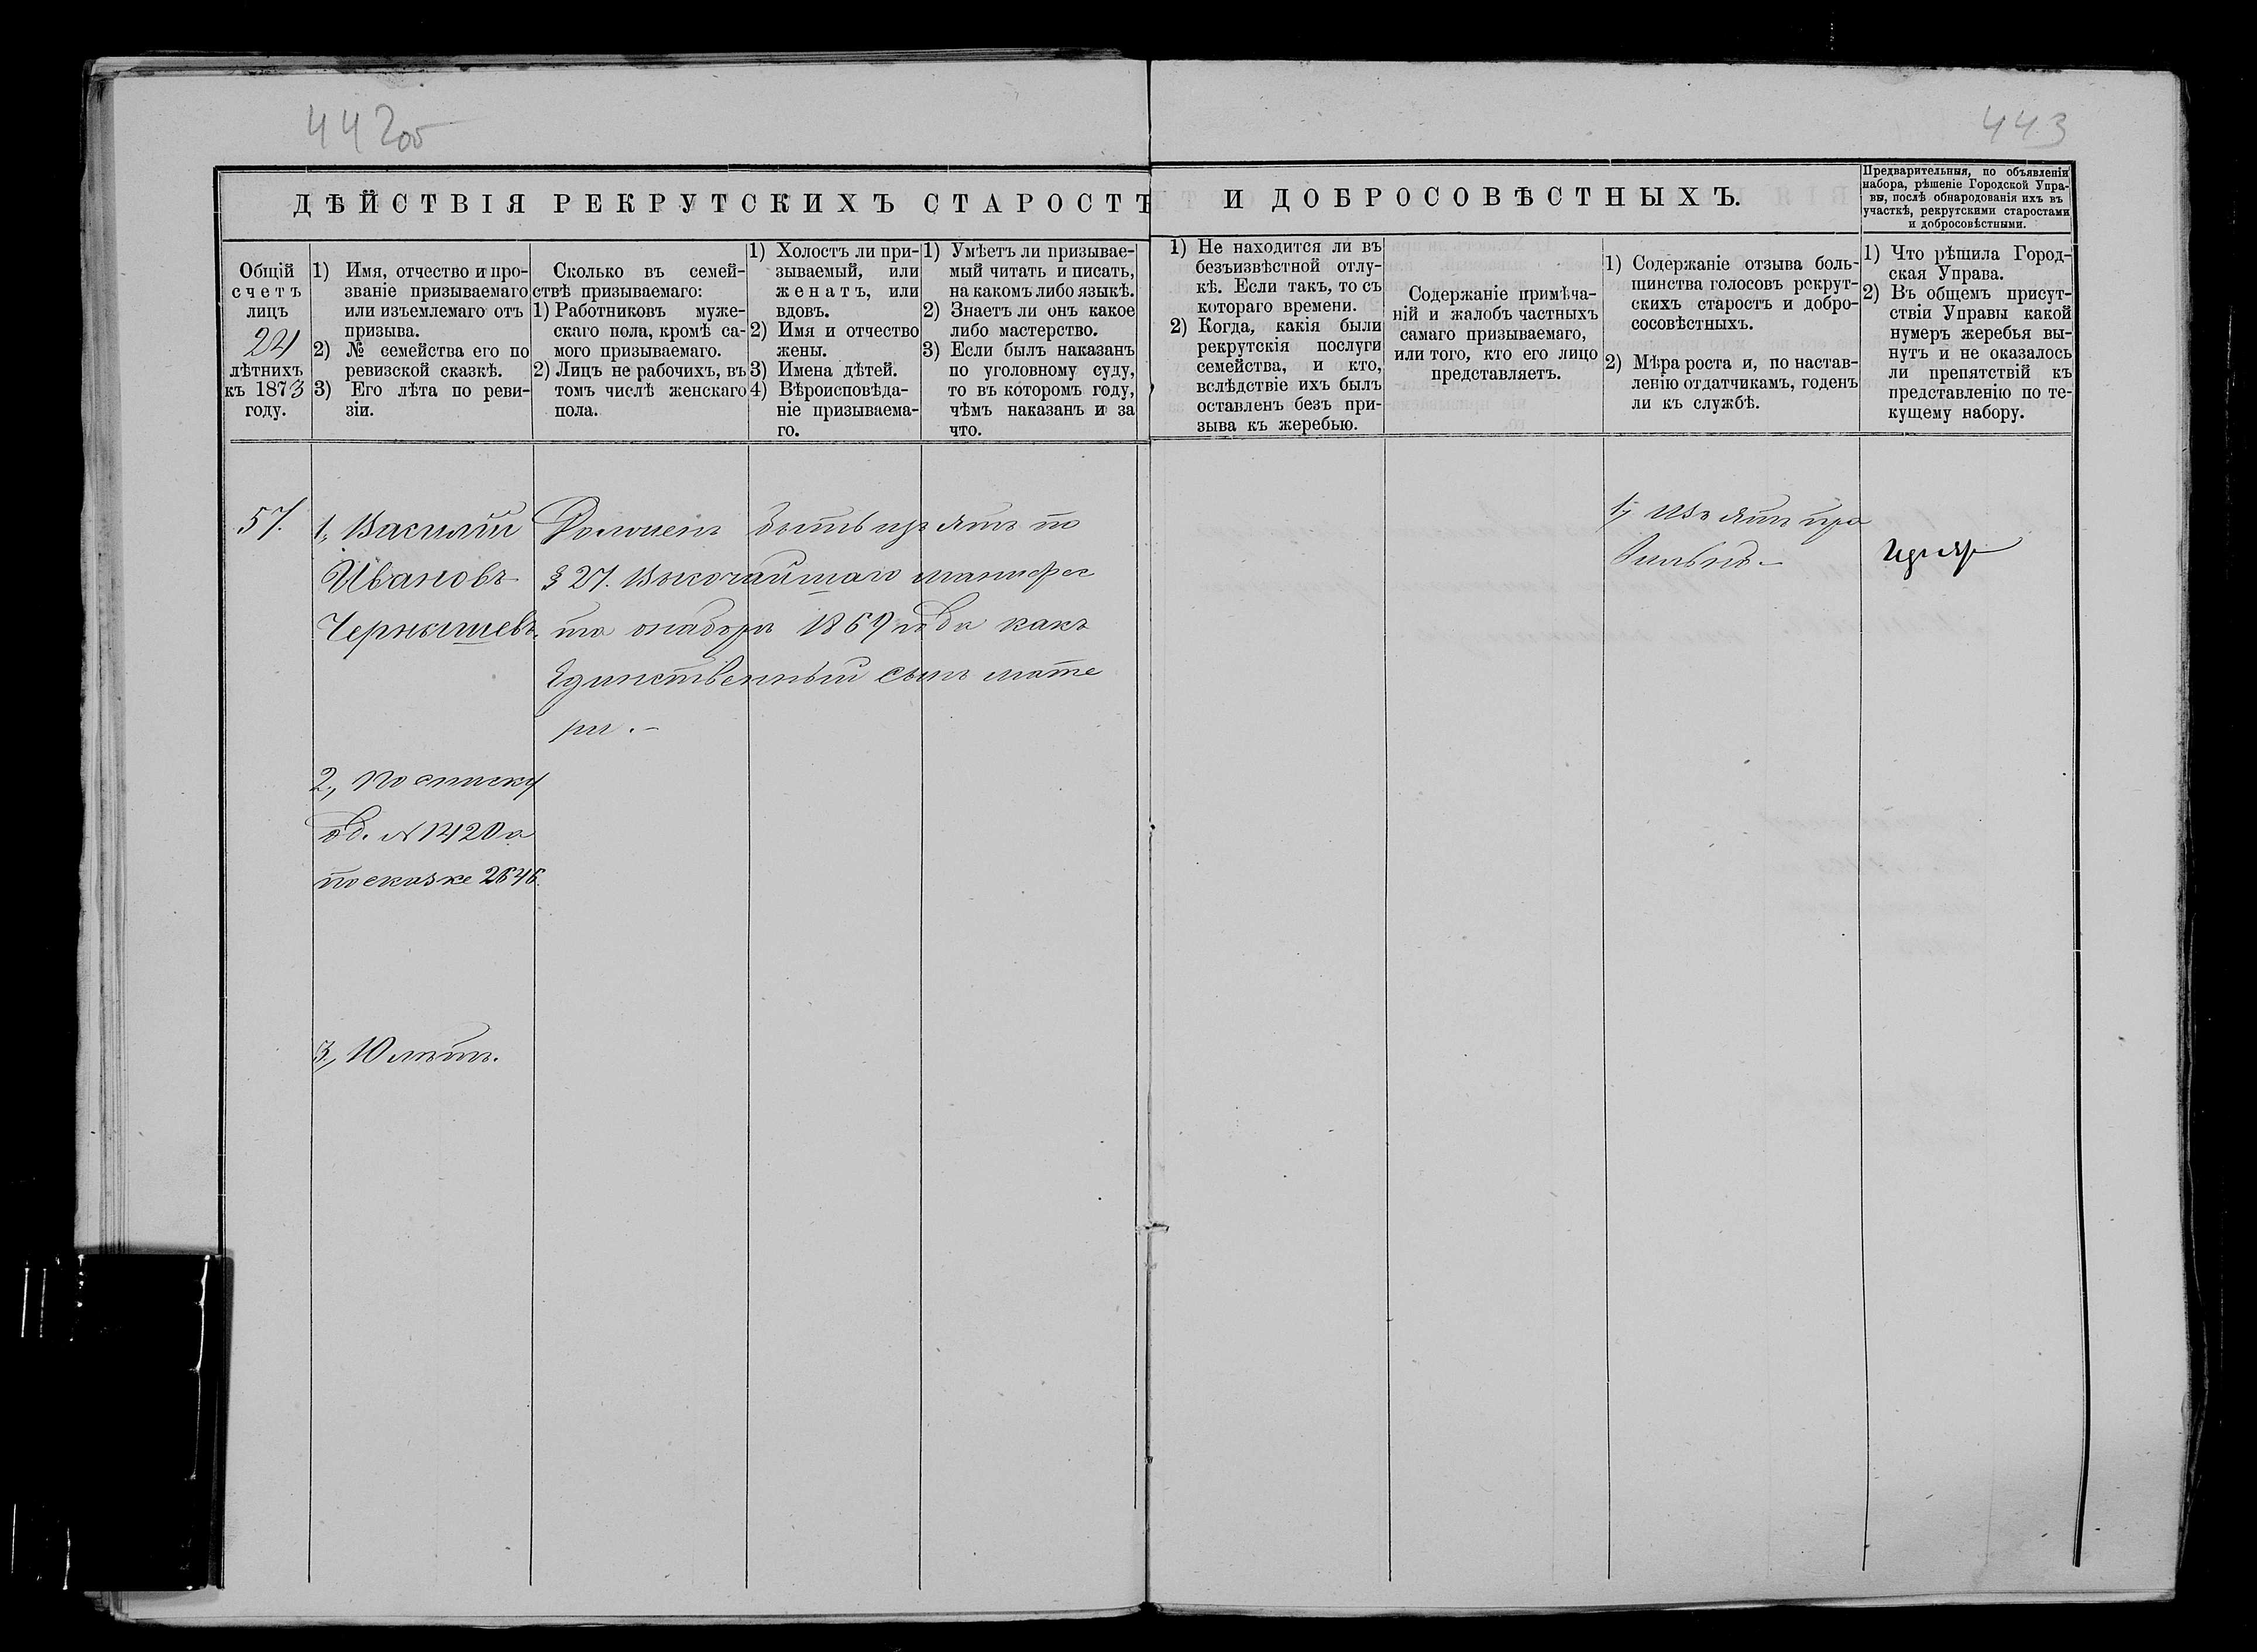 442об
443
ДѢЙСТВІЯ РЕКРУТСКИХЪ СТАРОСТЪ И ДОБРОСОВѢСТНЫХЪ.
Предварительныя, по объявленіи
набора, рѣшеніе Городской Упра-
вы, послѣ обнародованія ихъ въ
участкѣ, рекрутскими старостами
и добросовѣстными.
Общій
счетъ
лицъ
21
лѣтнихъ
къ 1873
году.
1) Имя, отчество и про-
званіе призываемаго
или изъемлемаго отъ
призыва.
2) № семейства его по
ревизской сказкѣ.
3) Его лѣта по реви-
зіи.
Сколько въ семей-
ствѣ призываемаго:
1) Работниковъ муже-
скаго пола, кромѣ са-
мого призываемаго.
2) Лицъ не рабочихъ, въ
томъ числѣ женскаго
пола.
1) Холостъ ли при-
зываемый, или
женатъ, или
вдовъ.
2) Имя и отчество
жены.
3) Имена дѣтей.
4) Вѣроисповѣда-
ніе призываема-
го.
1) Умѣетъ ли призывае-
мый читать и писать,
на какомъ либо языкѣ.
2) Знаетъ ли онъ какое
либо мастерство.
3) Если былъ наказанъ
по уголовному суду,
то въ которомъ году,
чѣмъ наказанъ и за
что.
1) Не находится ли въ
безъизвѣстной отлу-
кѣ. Если такъ, то съ
котораго времени.
2) Когда, какія были
рекрутскія послуги
семейства, и кто,
вслѣдствіе ихъ былъ
оставленъ безъ при-
зыва къ жеребью.
Содержаніе примѣча-
ній и жалобъ частныхъ
самаго призываемаго,
или того, кто его лицо
представляетъ.
1) Содержаніе отзыва боль-
шинства голосовъ рекрут-
скихъ старостъ и добро-
сосовѣстныхъ.
2) Мѣра роста и, по настав-
ленію отдатчикамъ, годенъ
ли къ службѣ.
1) Что рѣшила Город-
ская Управа.
2) Въ общемъ присут-
ствіи Управы какой
нумеръ жеребья вы-
нутъ и не оказалось
ли препятствій къ
представленію по те-
кущему набору.
57.
1, Василій
Ивановъ
Чернышевъ.
2, По списку
об. № 1420 а
по сказке 2646.
3, 10 лѣтъ.
Долженъ быть изъятъ по
§ 27. Высочайшаго манифес
та о наборѣ 1869 года какъ
Единственный сынъ мате
ри.–
1, Изъятъ пра
вильно.–